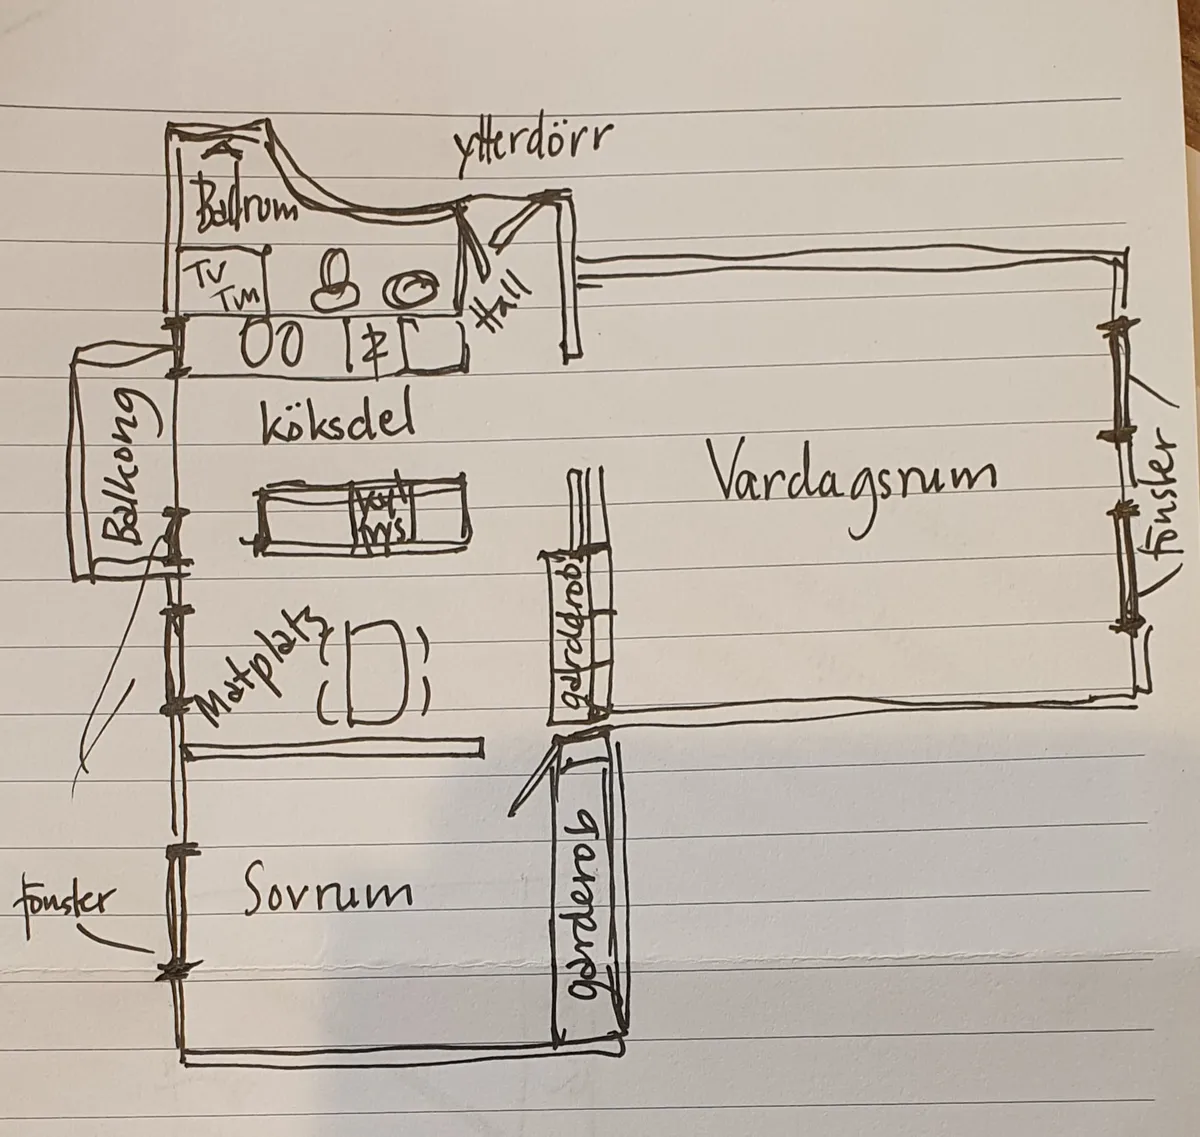 ytterdörr
Badrum
TV
Tm
Hall
köksdel
Balkong
Vardagsrum
fönster
garderob
Matplats
Sovrum
fönster
garderob